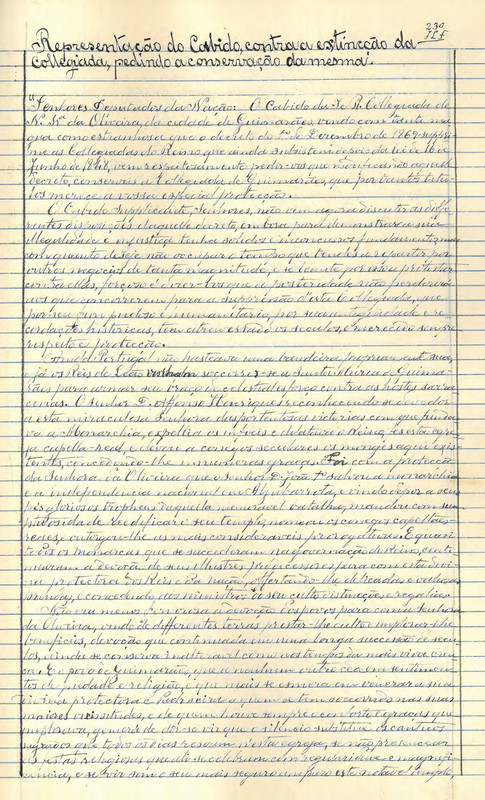 230
Representação do Cabido, contra a extincção da
Collegiada, pedindo a conservação da mesma.
"Senhores Deputados da Nação: O Cabido da I. e R. Collegiada de
N. Sª da Oliveira, da cidade de Guimarães, vendo com tanta ma-
gua como estranhesa que o decreto do 1º de Dezembro de 1869 suppri-
me as Collegiadas do Reino que ainda subsistem depois da lei de 16 de
Junho de 1848, vem respeitosamente pedir-vos que modificando aquelle
decreto, conserveis a Collegiada de Guimarães, que por tantos titu-
los merece a vossa especial protecção.
O Cabido supplicante, Senhores, não vem agora discutir as diffe-
rentes disposições daquelle decreto, em bora para demonstrar a sua
illegalidade e injustiça tenha solidos e inconcussos fundamentos; mas
com quanto deseje não occupar o tempo que tendes a repartir por
outros negocios de tanta magnitude, e se limite por isso a protestar
contra ellas, forçoso é dizer-vos que a posteridade não perdoará
aos que concorrerem para a suppressão d'esta Collegiada, que
por seu fim piedoso e humanitario, por sua antiguidade e re-
cordações historicas, tem atravessado os seculos, e merecido sempre
respeito e protecção.
Ainda Portugal não hasteava uma bandeira propriamente sua,
e já os Reis de Leão vinham soccorrer-se a Santa Maria de Guima-
rães para armar seu braço de celestial esforço contra as hostes sarra-
cenas. O Senhor D. Affonso Henriques reconhecendo-se devedor
a esta miraculosa Senhora das portentosas victorias com que funda-
va a Monarchia, expellia os infieis e dilatava o Reino, fez esta egre-
ja capella-real, e elevou a conegos seculares os monges aqui exis-
tentes, concedendo-lhe innumeras graças. Foi com a protecção
da Senhora da Oliveira que o senhor D. João 1º salvou a monarchia
e a independencia nacional em Aljubarrota, e vindo depor a seus
pés gloriosos tropheus daquella memoravel batalha, mandou com sum-
ptuosidade reedificar o seu templo, nomeou os conegos capellães-
reaes, e outorgou-lhe as mais consideraveis prerogativas. E quan-
tos os monarcas que se succederam na governação do Reino, conti-
nuaram a devoção de seus illustres predecessores para com esta divi-
na protectora dos Reis e da nação, offertando-lhe delicadas e valiosas
prendas, e concedendo aos ministros de seu culto distincções e regalias.
Não era menos fervorosa a devoção dos povos para com a Senhora
da Oliveira, vindo de differentes terras prestar-lhe culto e implorar-lhe
beneficios, devoção que continuada em uma longa successão de secu-
los, ainda se conserva inalteravel como nos tempos da mais viva cren-
ça. E o povo de Guimarães, que a nenhum outro cede em sentimen-
tos de piedade e religião, e que mais se esmera em venerar a sua
divina protectora e Padroeira a quem se tem soccorrido nas suas
maiores vicissitudes, e de quem houve sempre o conforto e graças que
implorava, gemerá de dor se vir que o silencio substitue os canticos
sagrados que todos os dias resoam n'esta egreja, se não presencear
as festas religiosas que alli se celebram com regularidade e magnifi-
cencia, e se vir sem o seu mais seguro amparo este notavel templo,